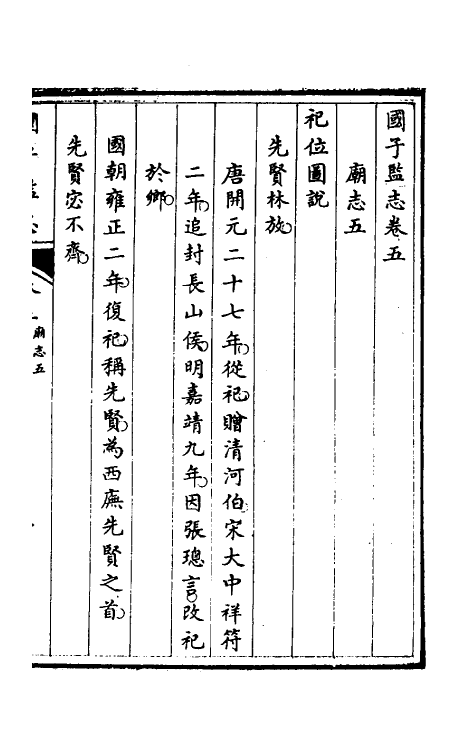 國子監志卷五
廟志五
祀位圖說
先賢林放
唐開元二十七年從祀贈清河伯宋大中祥符
二年追封長山侯明嘉靖九年因張璁言改祀
於鄉
國朝雍正二年復祀稱先賢為西廡先賢之首
先賢宓不齊
廟志五